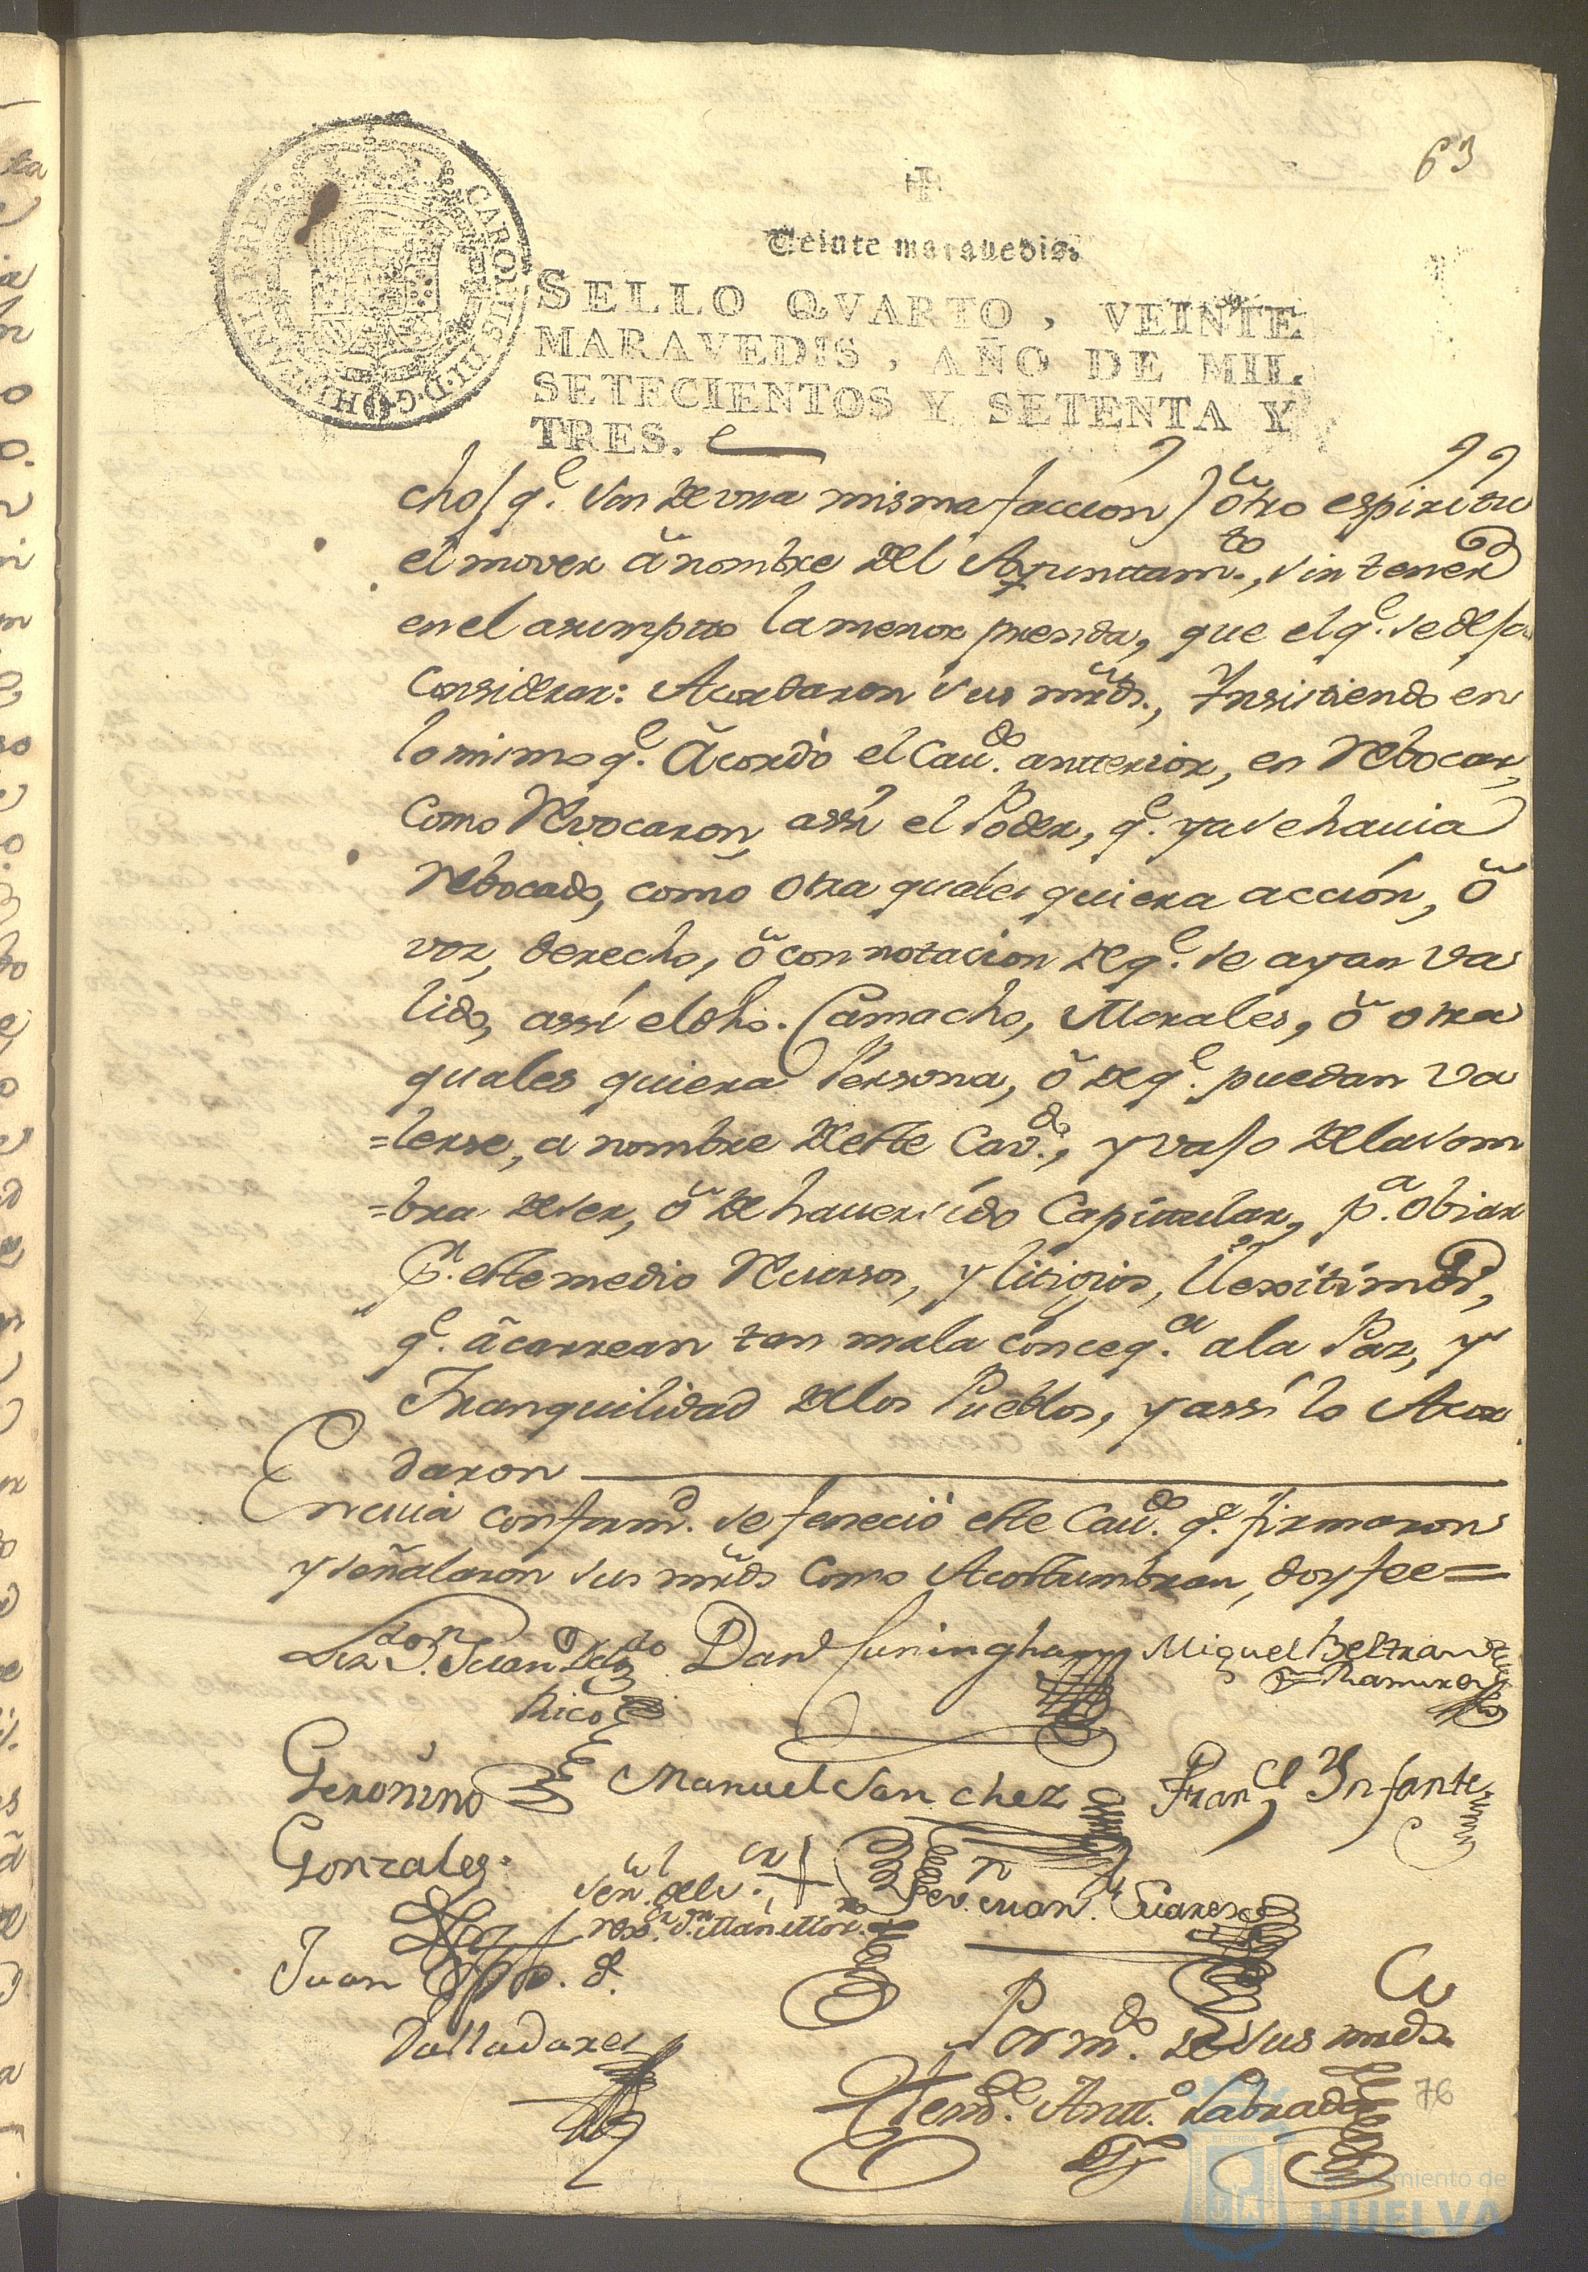 63
Veinte maravedis.
SELLO QVARTO, VEINTE
MARAVEDIS, AÑO DE MIL
SETECIENTOS Y SETENTA Y
TRES.
CAROLUS III D.G. HISPANIAR REX
cho/ qe. son de una misma faccion) otro espiritu
el mover a nombre del Ayunttamto., sin tener
en el asumpto la menor prenda, que el qe. se dexa
considerar: Acordaron sus mrds., Insistiendo en
lo mismo qe. Acordó el Caudo. antterior, en Rebocar,
como Revocaron assi el Poder, qe. ya se hauia
Rebocado, como otra quales quiera acción, ó
voz, derecho, ó connotacion de qe. se ayan va
lido, assí el dho. Camacho, Morales, ó otra
quales quiera Persona, ó de qe. puedan va
=lerse, a nombre deste Cavdo., y vajo de la som
=bra de ser, ó de hauer sido Capitular, pa. obiar
pr. este medio Recursos, y litigios, Ilexitimos,
qe. ácarrean tan mala conceqa. a la Paz, y
Tranquilidad de los Pueblos, y assi lo Acor
daron
En cuia conformd. se feneció este Caudo. qe. firmaron
y señalaron sus mrds como Acostumbran, doy fee=
Lizdo. Dn. Juan
Rico
Dan Cuningham
Miguel Beltran
Ramirez
Geronimo
Gonzales.
Manuel Sanchez
Franco Infante
Señl. del Sr.
rexor. Dn. Man Mor.
Juan
Valladares
Sevn. Juan. Suares
Por mdo. de sus mrds
Antto. Labrador
76
Ayuntamiento de
HUELVA